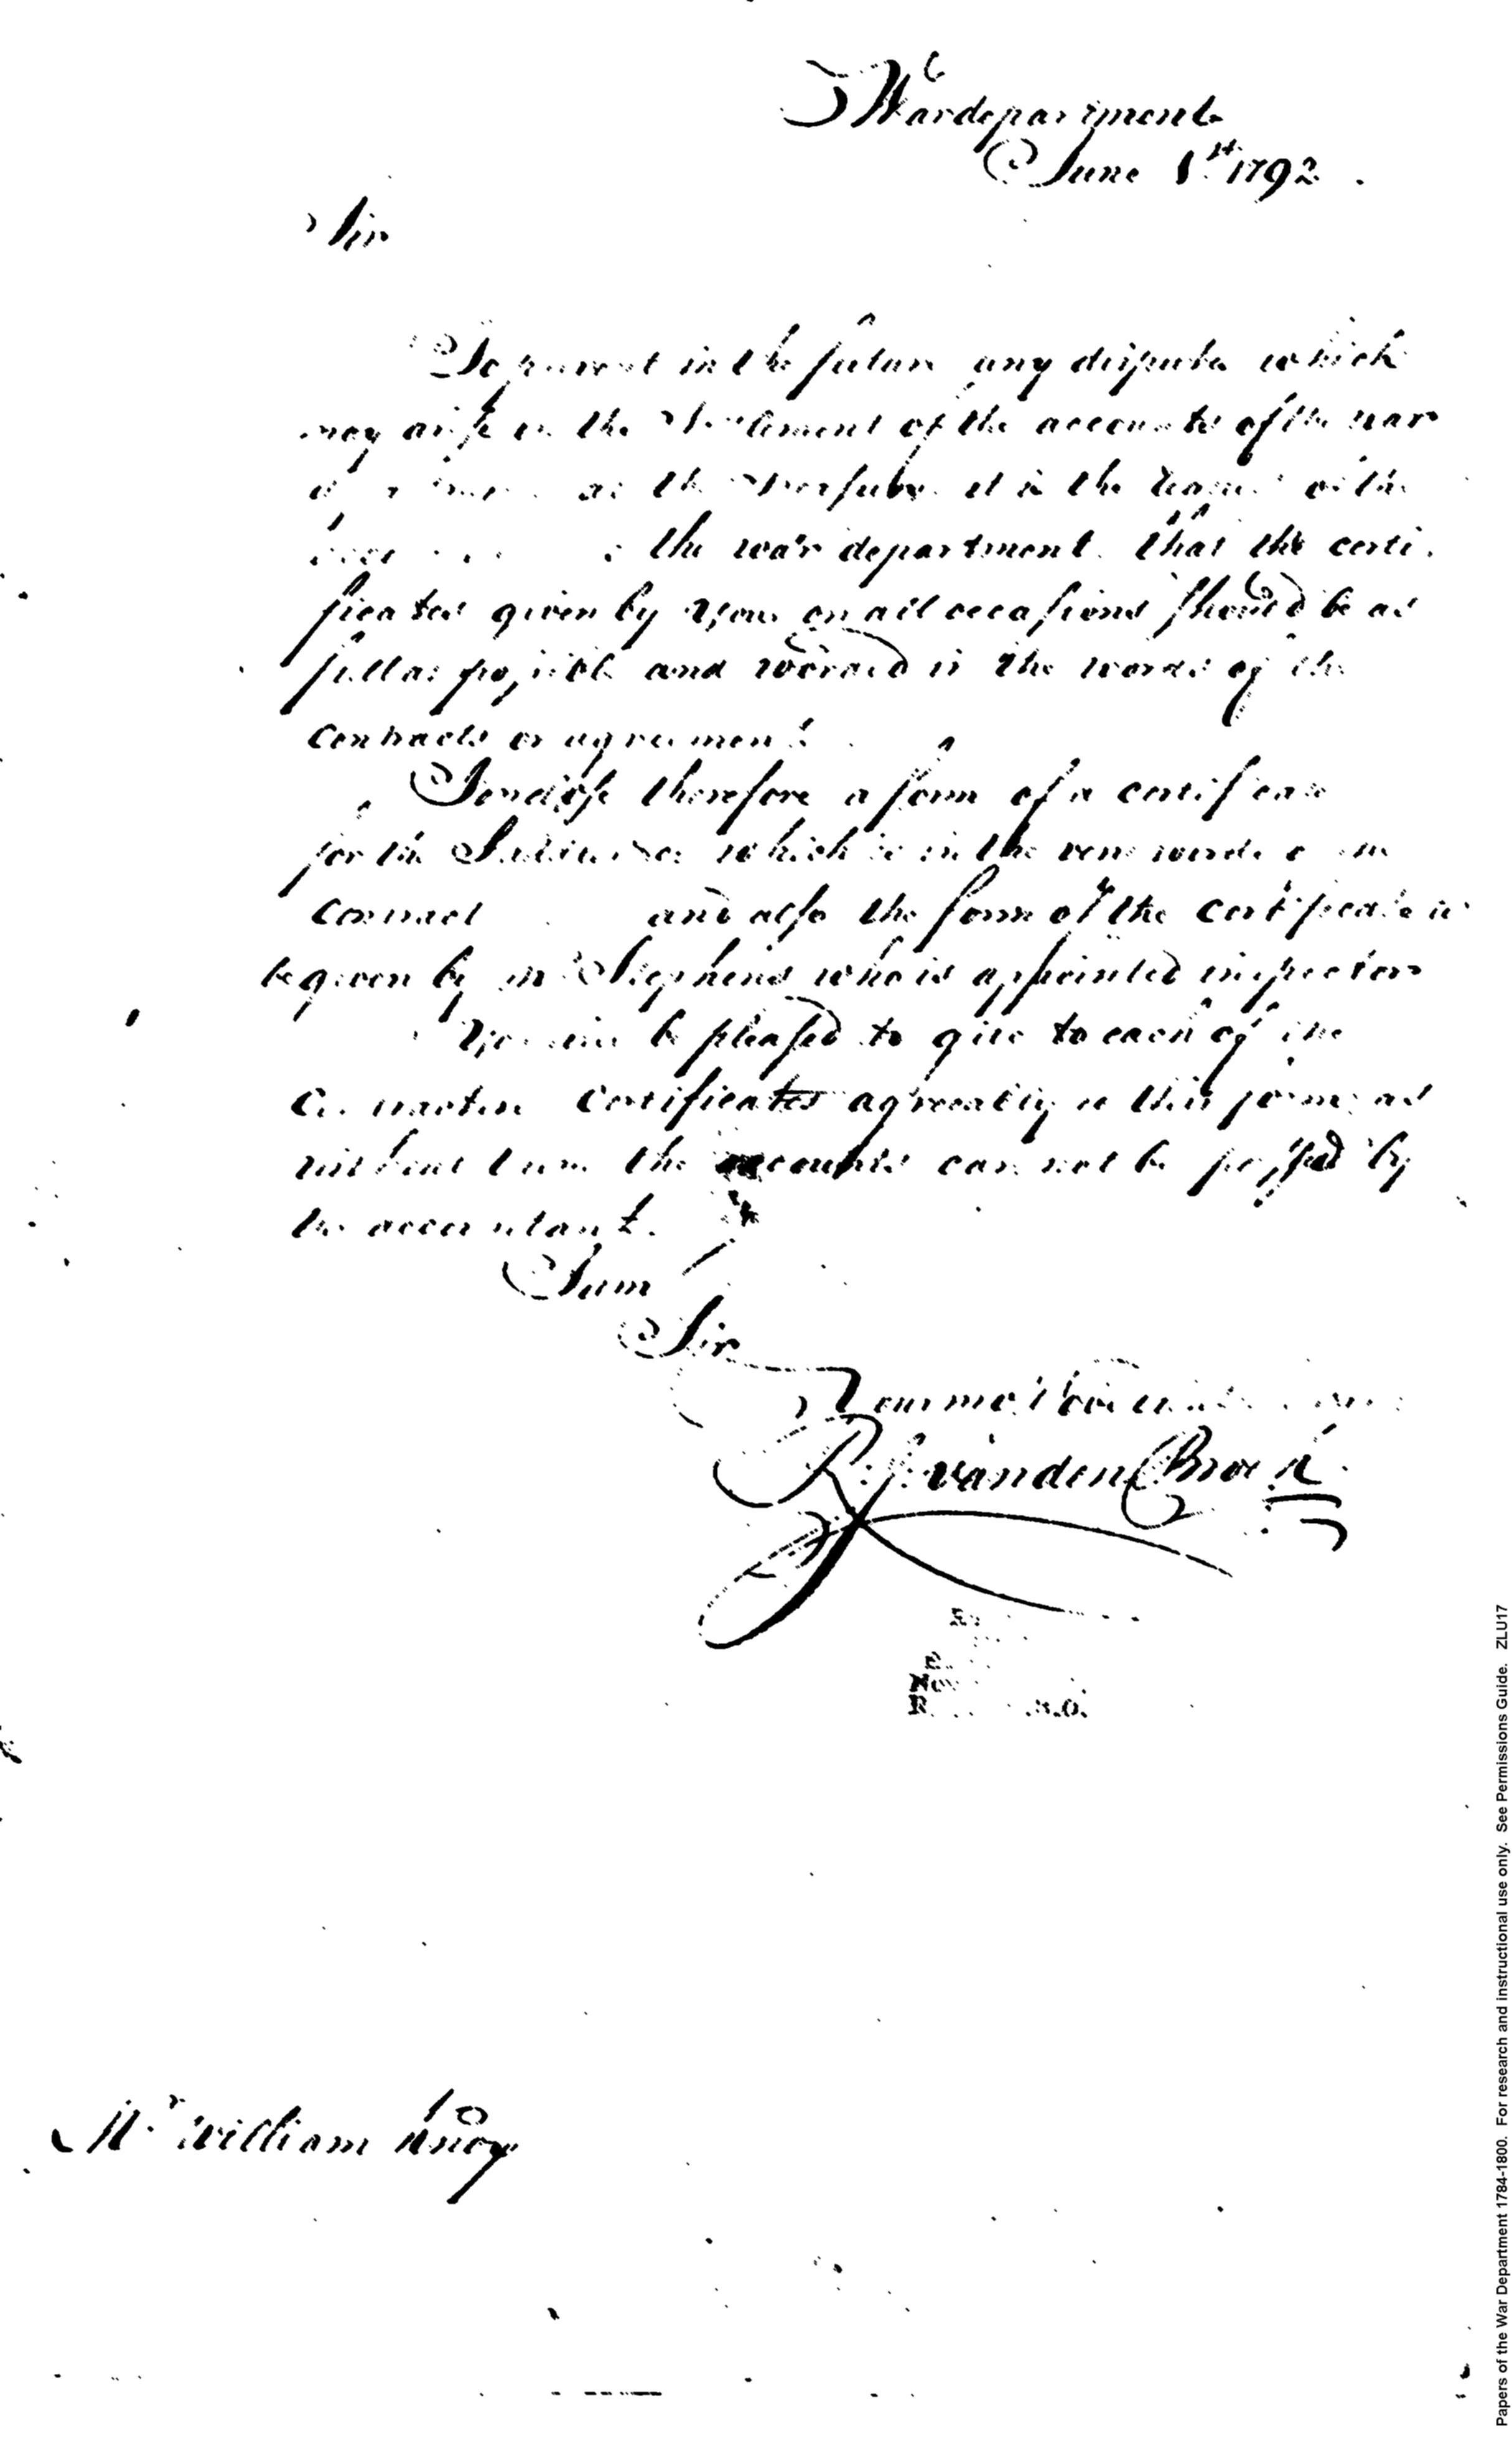 War department
June 1st 1792.
Sir
To prevent in the future any dispute which
may arise in the Settlement of the accounts of the war
at the it is the with the
the war department. that the certi
ficates given by you on all occasions should be as
full as possible and worded in the words of the
contracts or agreement
I enclose therefore a form of a certificate
for the which is in the very words
contract and also the form of the Certificate to
be given by Mr Stephens who is appointed inspector
You will be pleased to give to each of the
Contractors Certificates agreeably to this form, as
without them the accounts can not be passed by
the accountant.
I am
Sir
Your most
R. J. vanden Broek
Mr. William Knox
Papers of the War Department 1784-1800. For research and instructional use only. See Permissions Guide. ZLU17